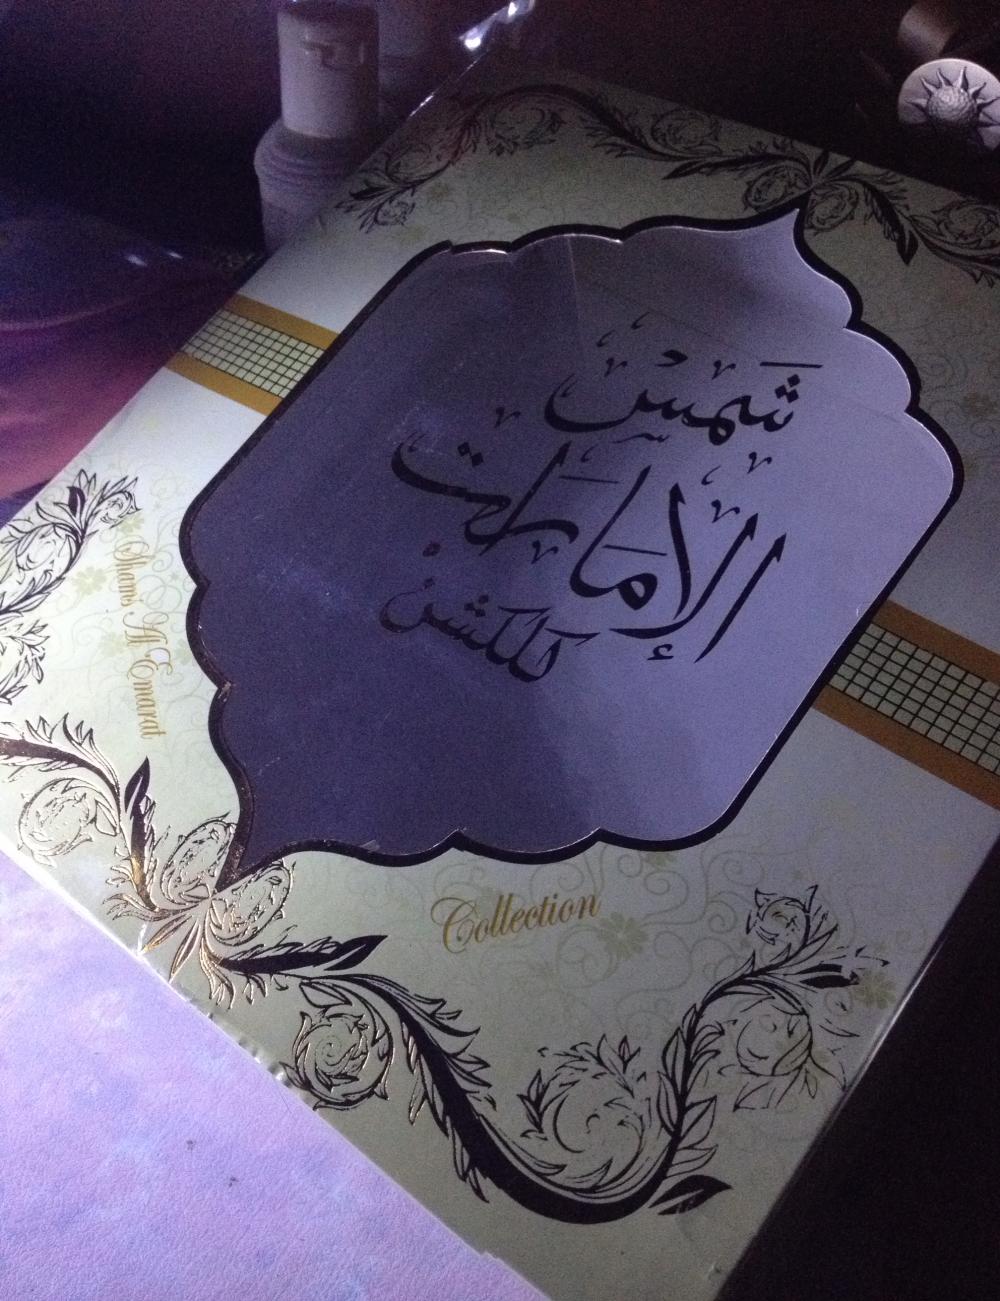 شَمسُ
الإمَارَات
كلكشنْ
Shams Al Emarat
Collection